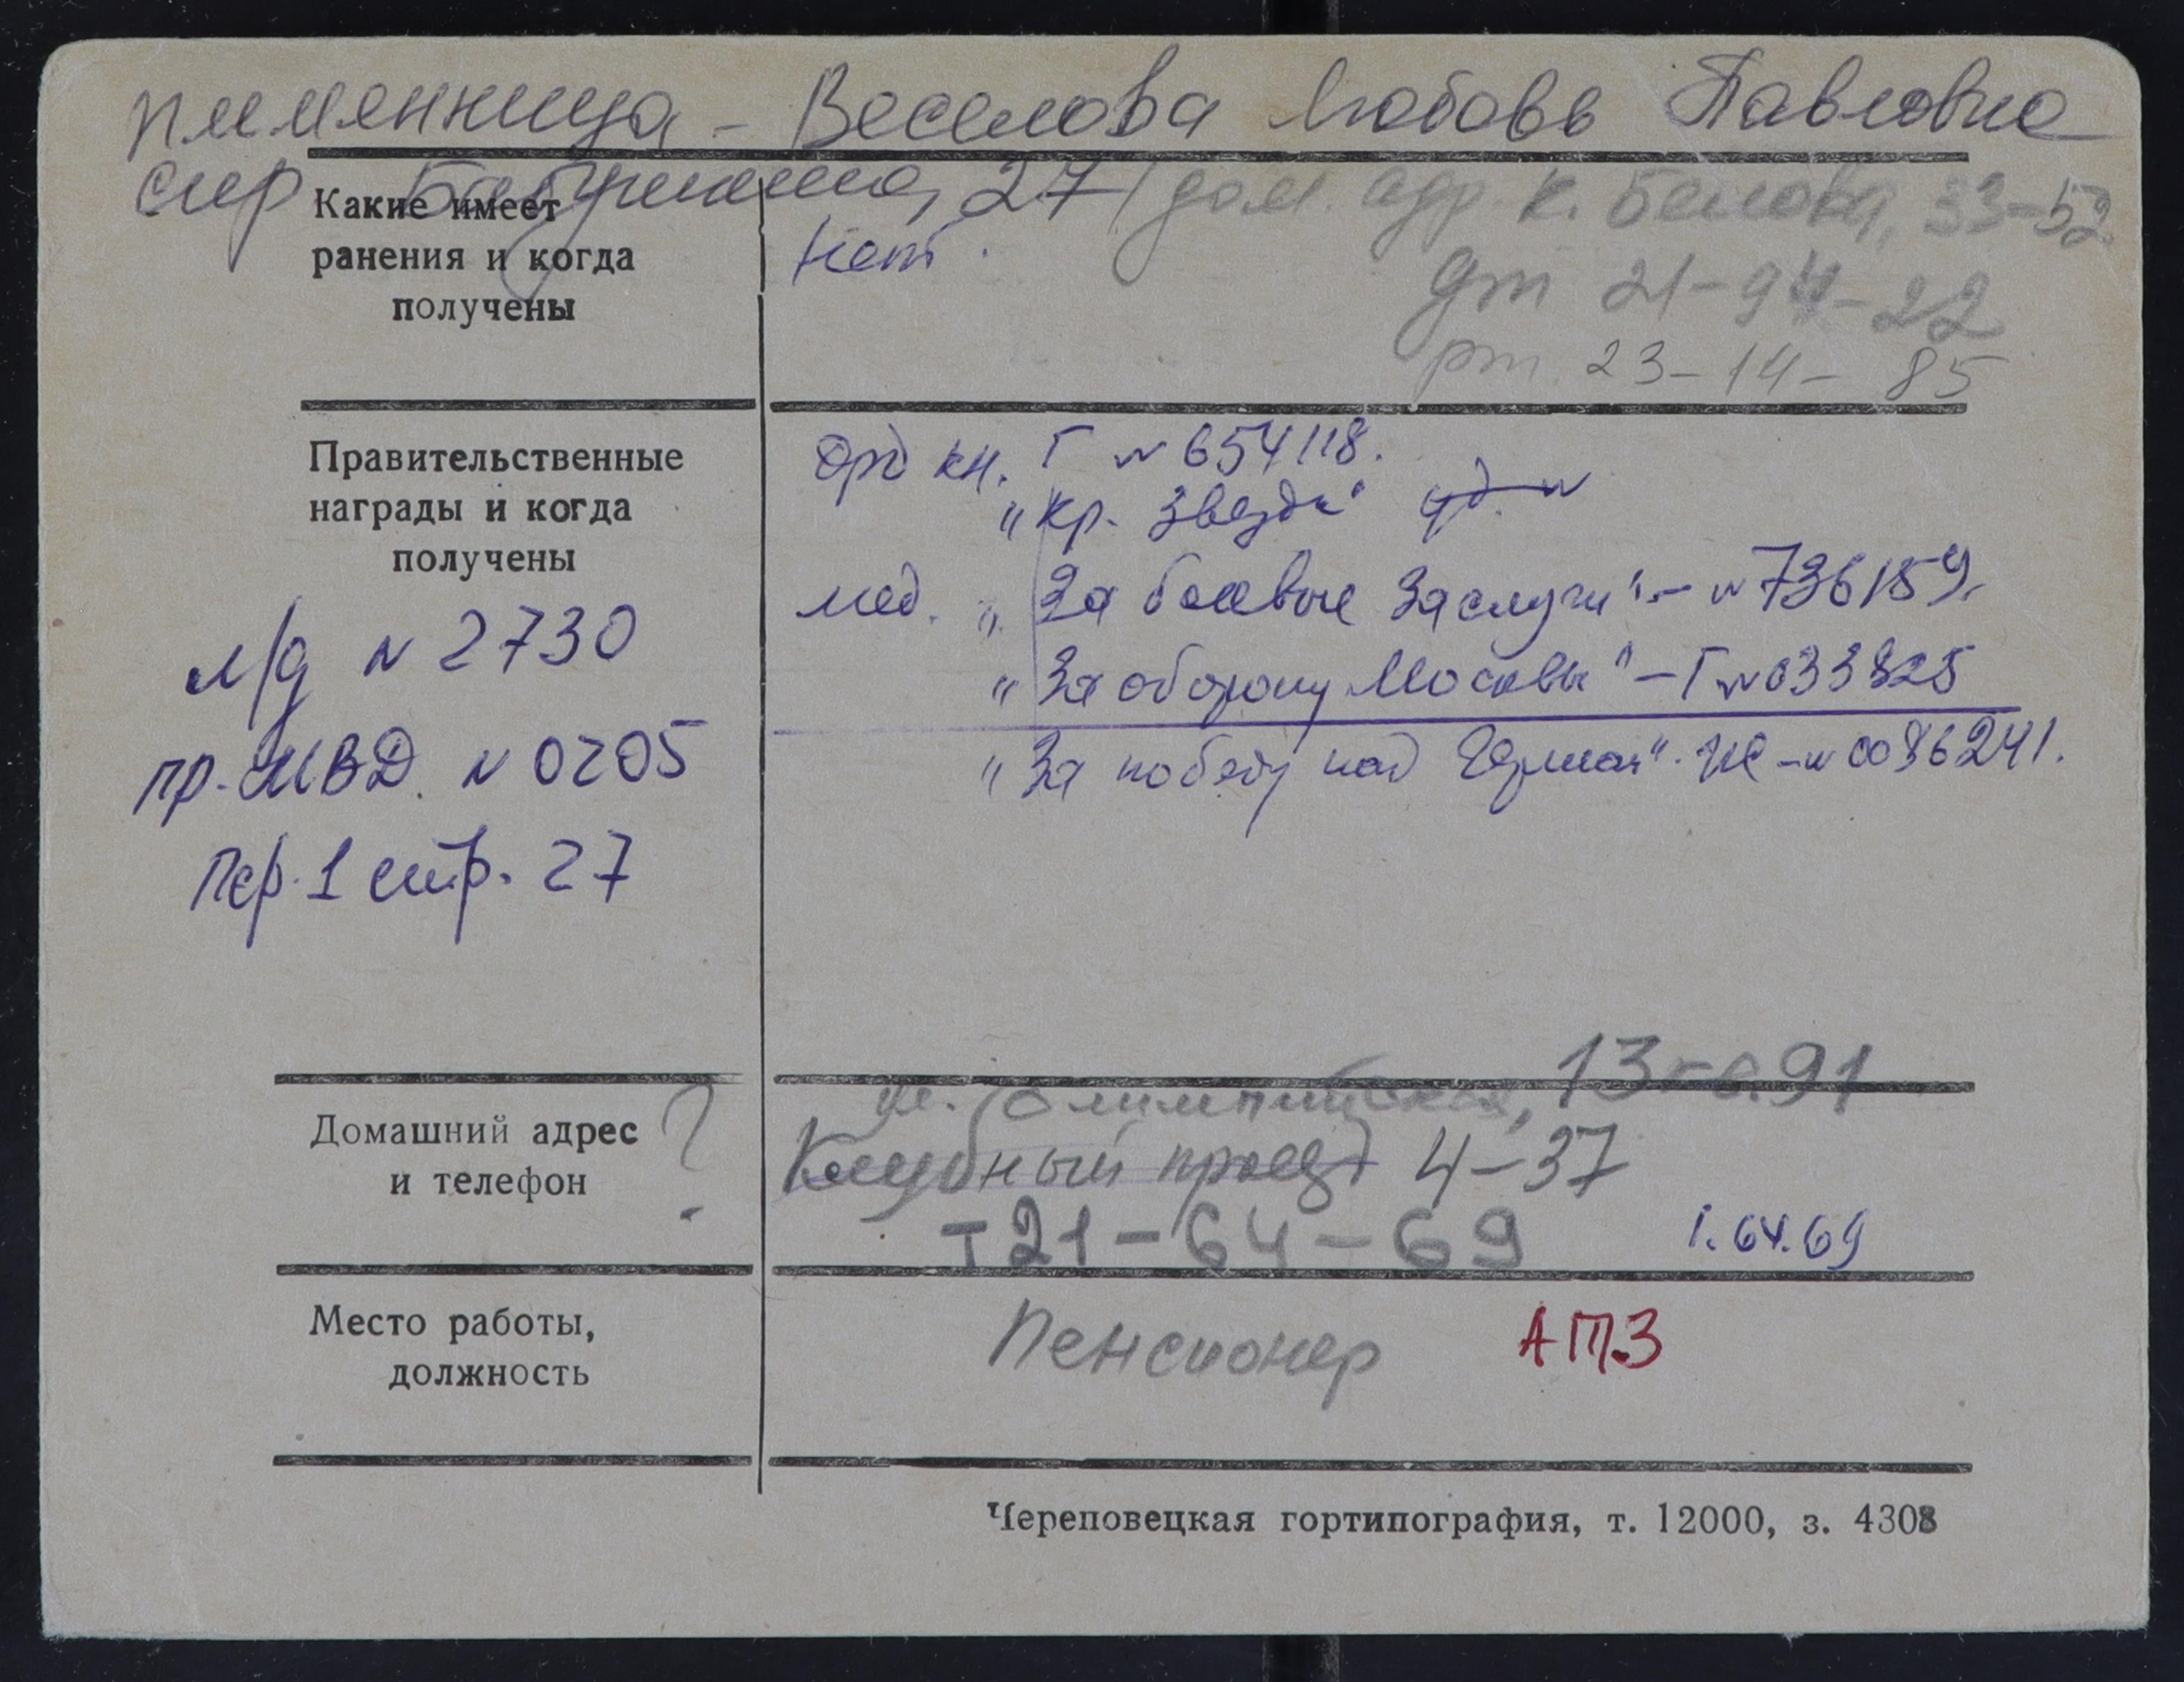 племянница - Веселова Любовь Павловна
стр Бабушкина, 27 / дом. адр. К. Белова, 33-52
Какие имеет
ранения и когда
получены
Нет.
дт 21-94-22
рт. 23-14-85
Правительственные
награды и когда
получены
орд кн. Г № 654118.
" Кр. Звезда"
мед. "За боевые заслуги" - № 736159.
"За оборону Москвы" - Г № 033825
"За победу над Герман". № 0086241.
л/д № 2730
пр. МВД. № 0205
пер. 1 стр. 27
Домашний адрес
и телефон
?
ул. Олимпийская, 13-91
Клубный проезд 4-37
т 21-64-69
1.64.69
Место работы,
должность
Пенсионер АТЗ
Череповецкая гортипография, т. 12000, з. 4308